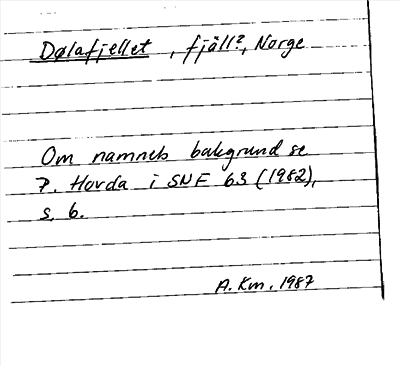 Dølafjellet, fjäll?, Norge
Om namnets bakgrund se
P. Hovda i SNF 63 (1982),
s. 6.
A. Km. 1987